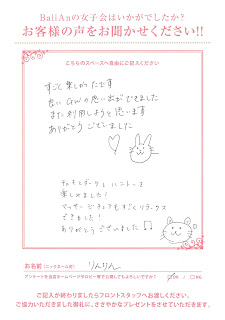 BaliAnの女子会はいかがでしたか?
お客様の声をお聞かせください!!
こちらのスペースへ自由にご記入ください
すごく楽しかったです
良いGWの思い出ができました
また利用しようと思います
ありがとうございました
楽しめました!
マッサージチェアもすごくリラックス
できました!
ありがとうございました
お名前(ニックネーム可) りんりん
アンケートを当店ホームページやロビー等で公開してもよろしいですか?
ご記入が終わりましたらフロントスタッフへお渡しください。
ご協力いただきました御礼に、ささやかなプレゼントをさせていただきます。